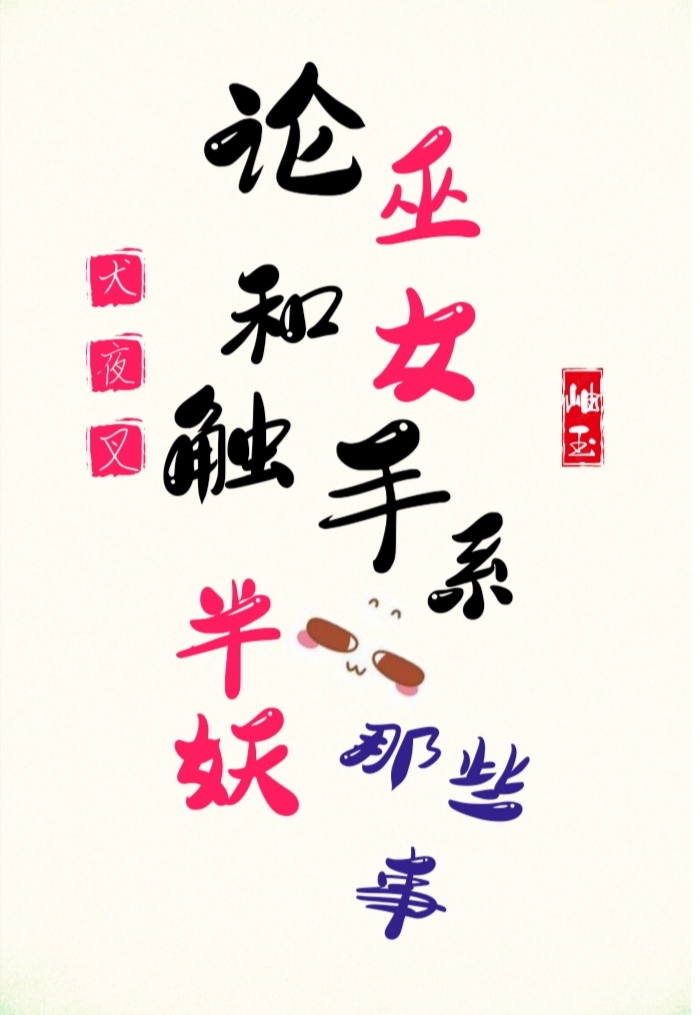 论巫女
和触手系
半妖
那些事
犬夜叉
岫玉